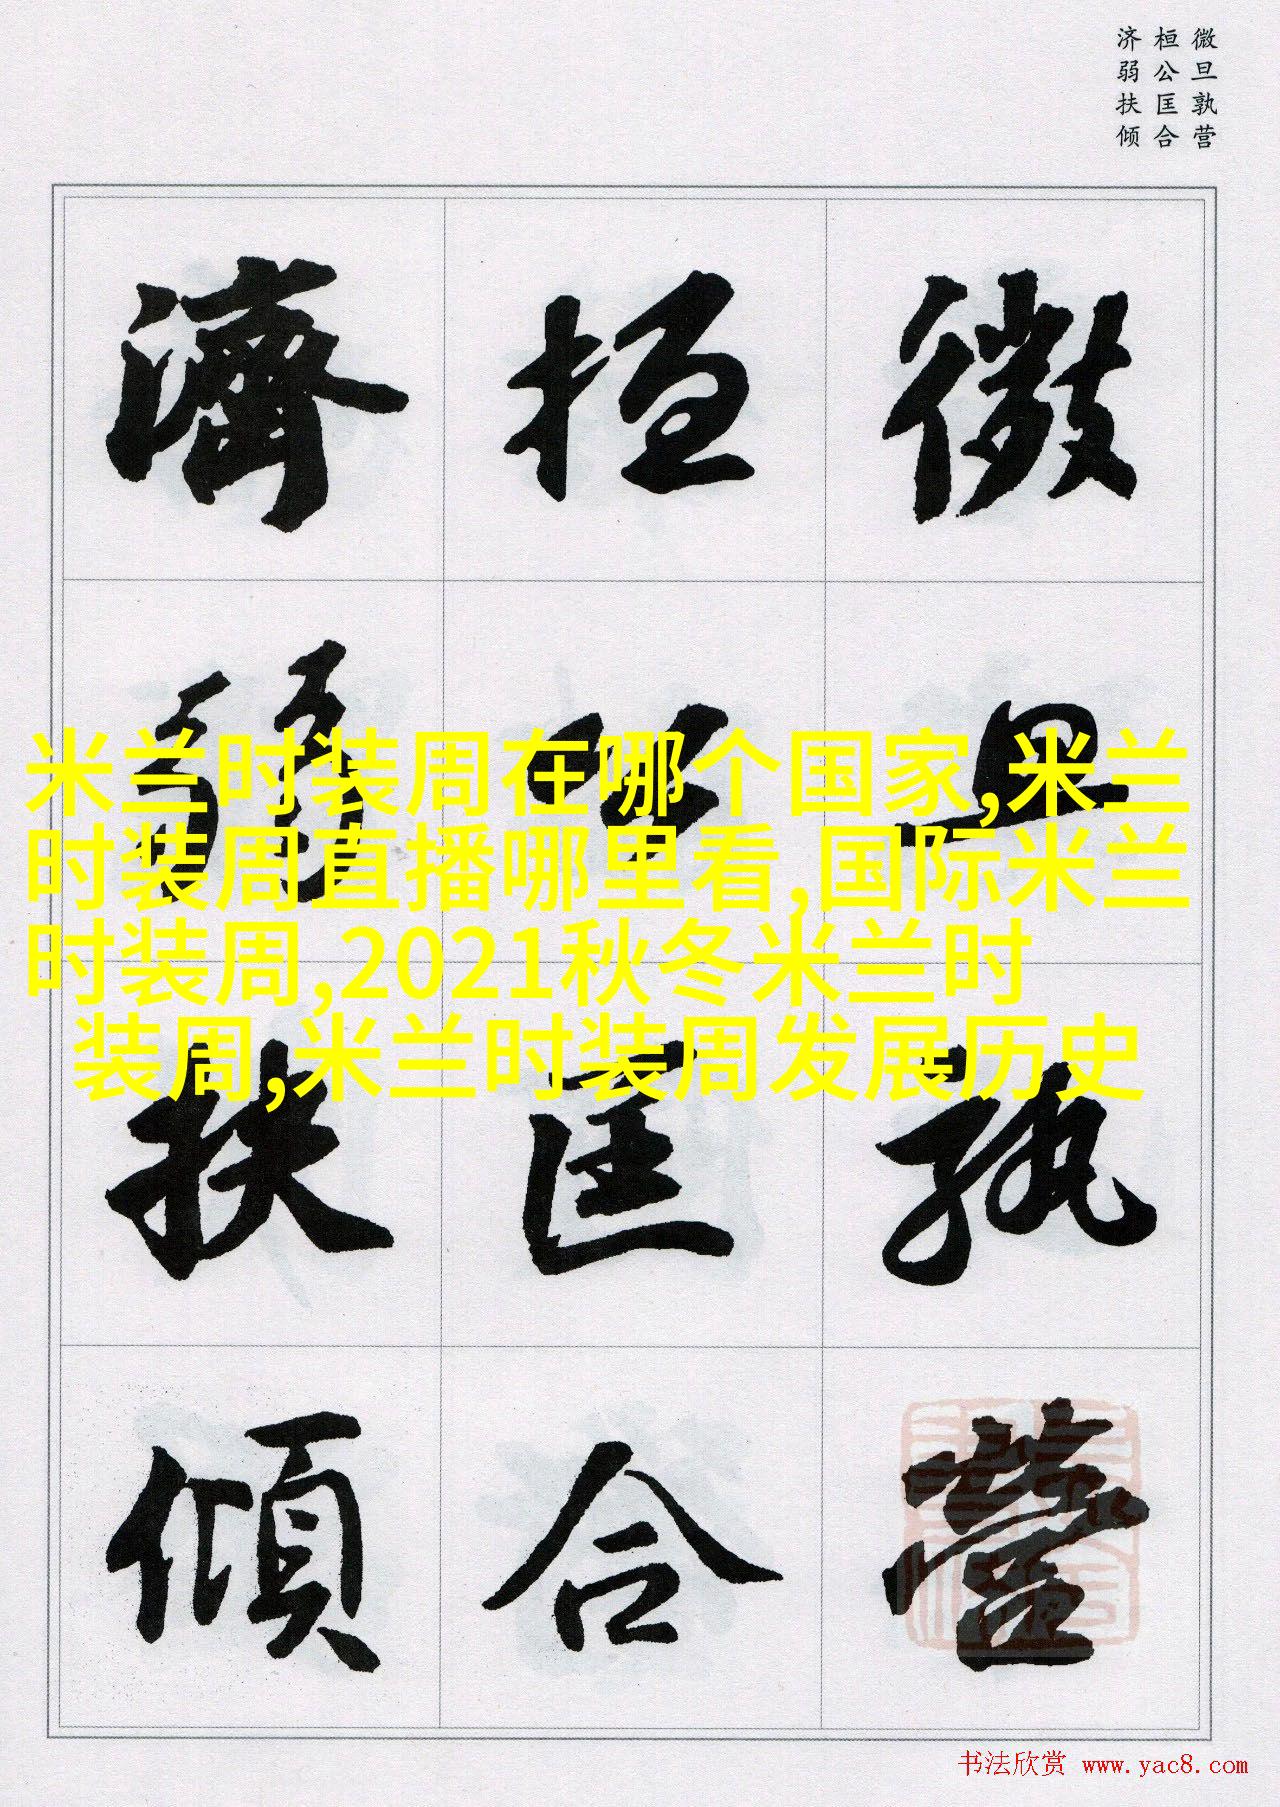 微旦孰营
桓公匡合
济弱扶倾
微旦孰營
桓公匡合
濟弱扶傾
米兰时装周在哪个国家,米兰
时装周直播哪里看,国际米兰
时装周,2021秋冬米兰时
装周,米兰时装周发展历史
书法欣赏 www.yac8.com